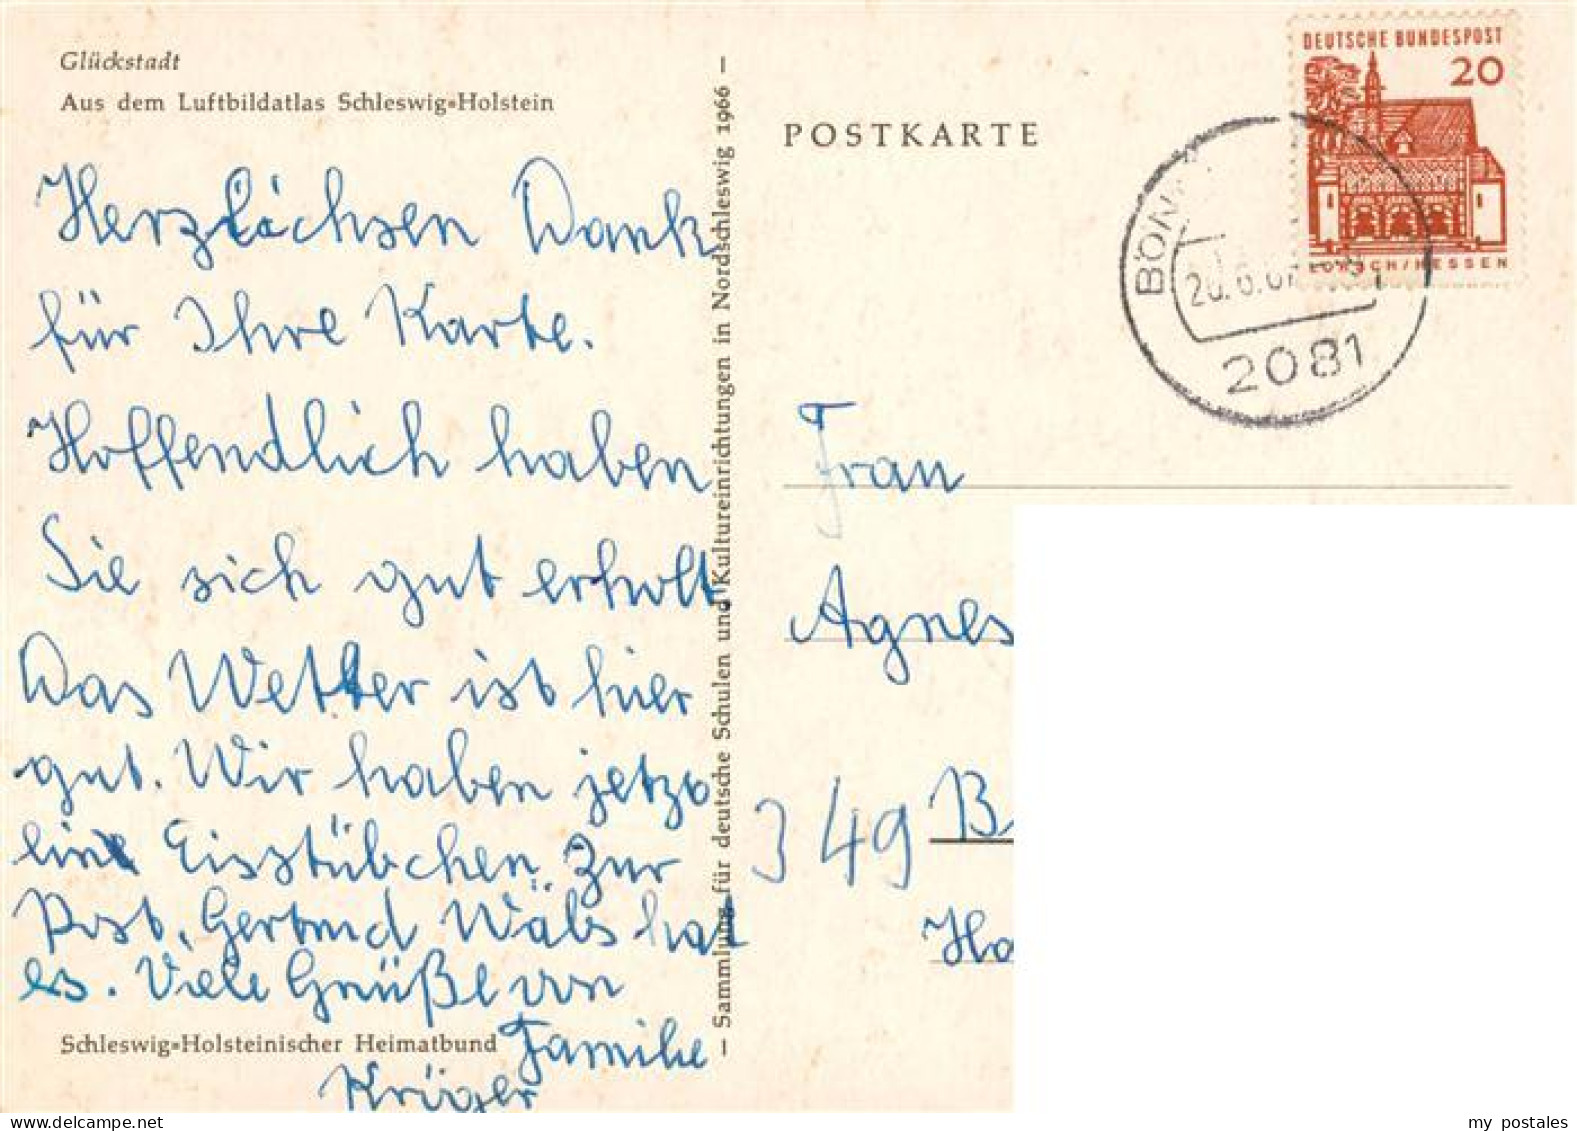 Glückstadt
Aus dem Luftbildatlas Schleswig-Holstein
Herzlichsen Dank
für Ihre Karte.
Hoffendlich haben
Sie sich gut erholt
Das Wetter ist hier
gut. Wir haben jetzt
eine Eisstübchen. Zur
Post, Gertrud Wäbs hat
es. Viele Grüße von
Familie
Krüger
Schleswig-Holsteinischer Heimatbund
— Sammlung für deutsche Schulen und Kultureinrichtungen in Nordschleswig 1966 —
POSTKARTE
DEUTSCHE BUNDESPOST
20
LORSCH/HESSEN
BÖN
20.6.67
2081
Frau
Agnes
349 B
Ha
my postales